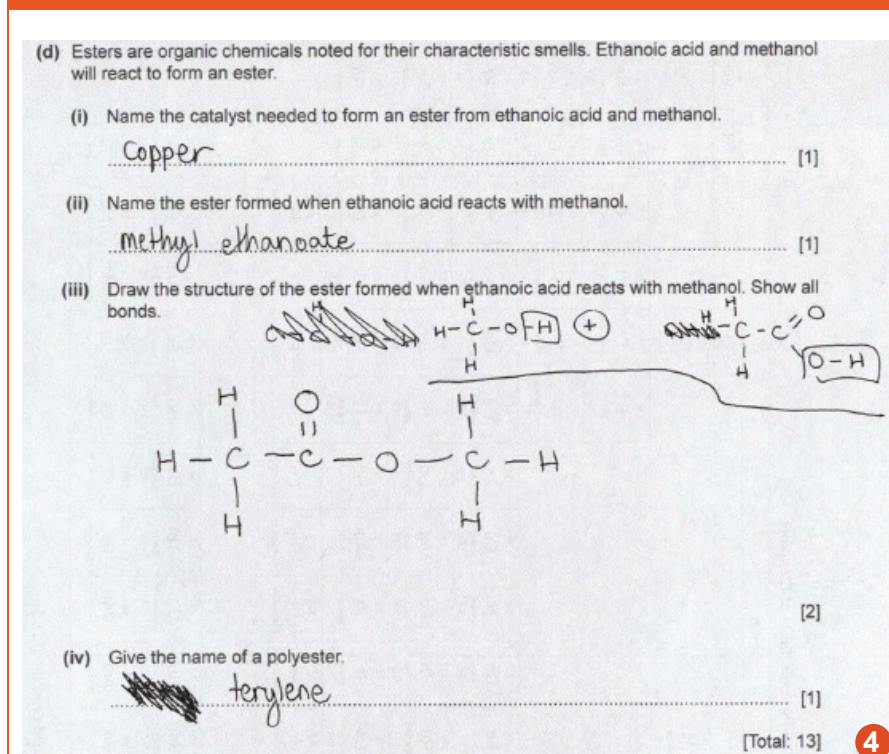 (d) Esters are organic chemicals noted for their characteristic smells. Ethanoic acid and methanol
will react to form an ester.
(i) Name the catalyst needed to form an ester from ethanoic acid and methanol.
Copper
[1]
(ii) Name the ester formed when ethanoic acid reacts with methanol.
methyl ethanoate
[1]
(iii) Draw the structure of the ester formed when ethanoic acid reacts with methanol. Show all
bonds.
H H H
H-C-O-H + -C-C=O
H H O-H
H O H
H-C-C-O-C-H
H H
[2]
(iv) Give the name of a polyester.
terylene
[1]
[Total: 13]
4